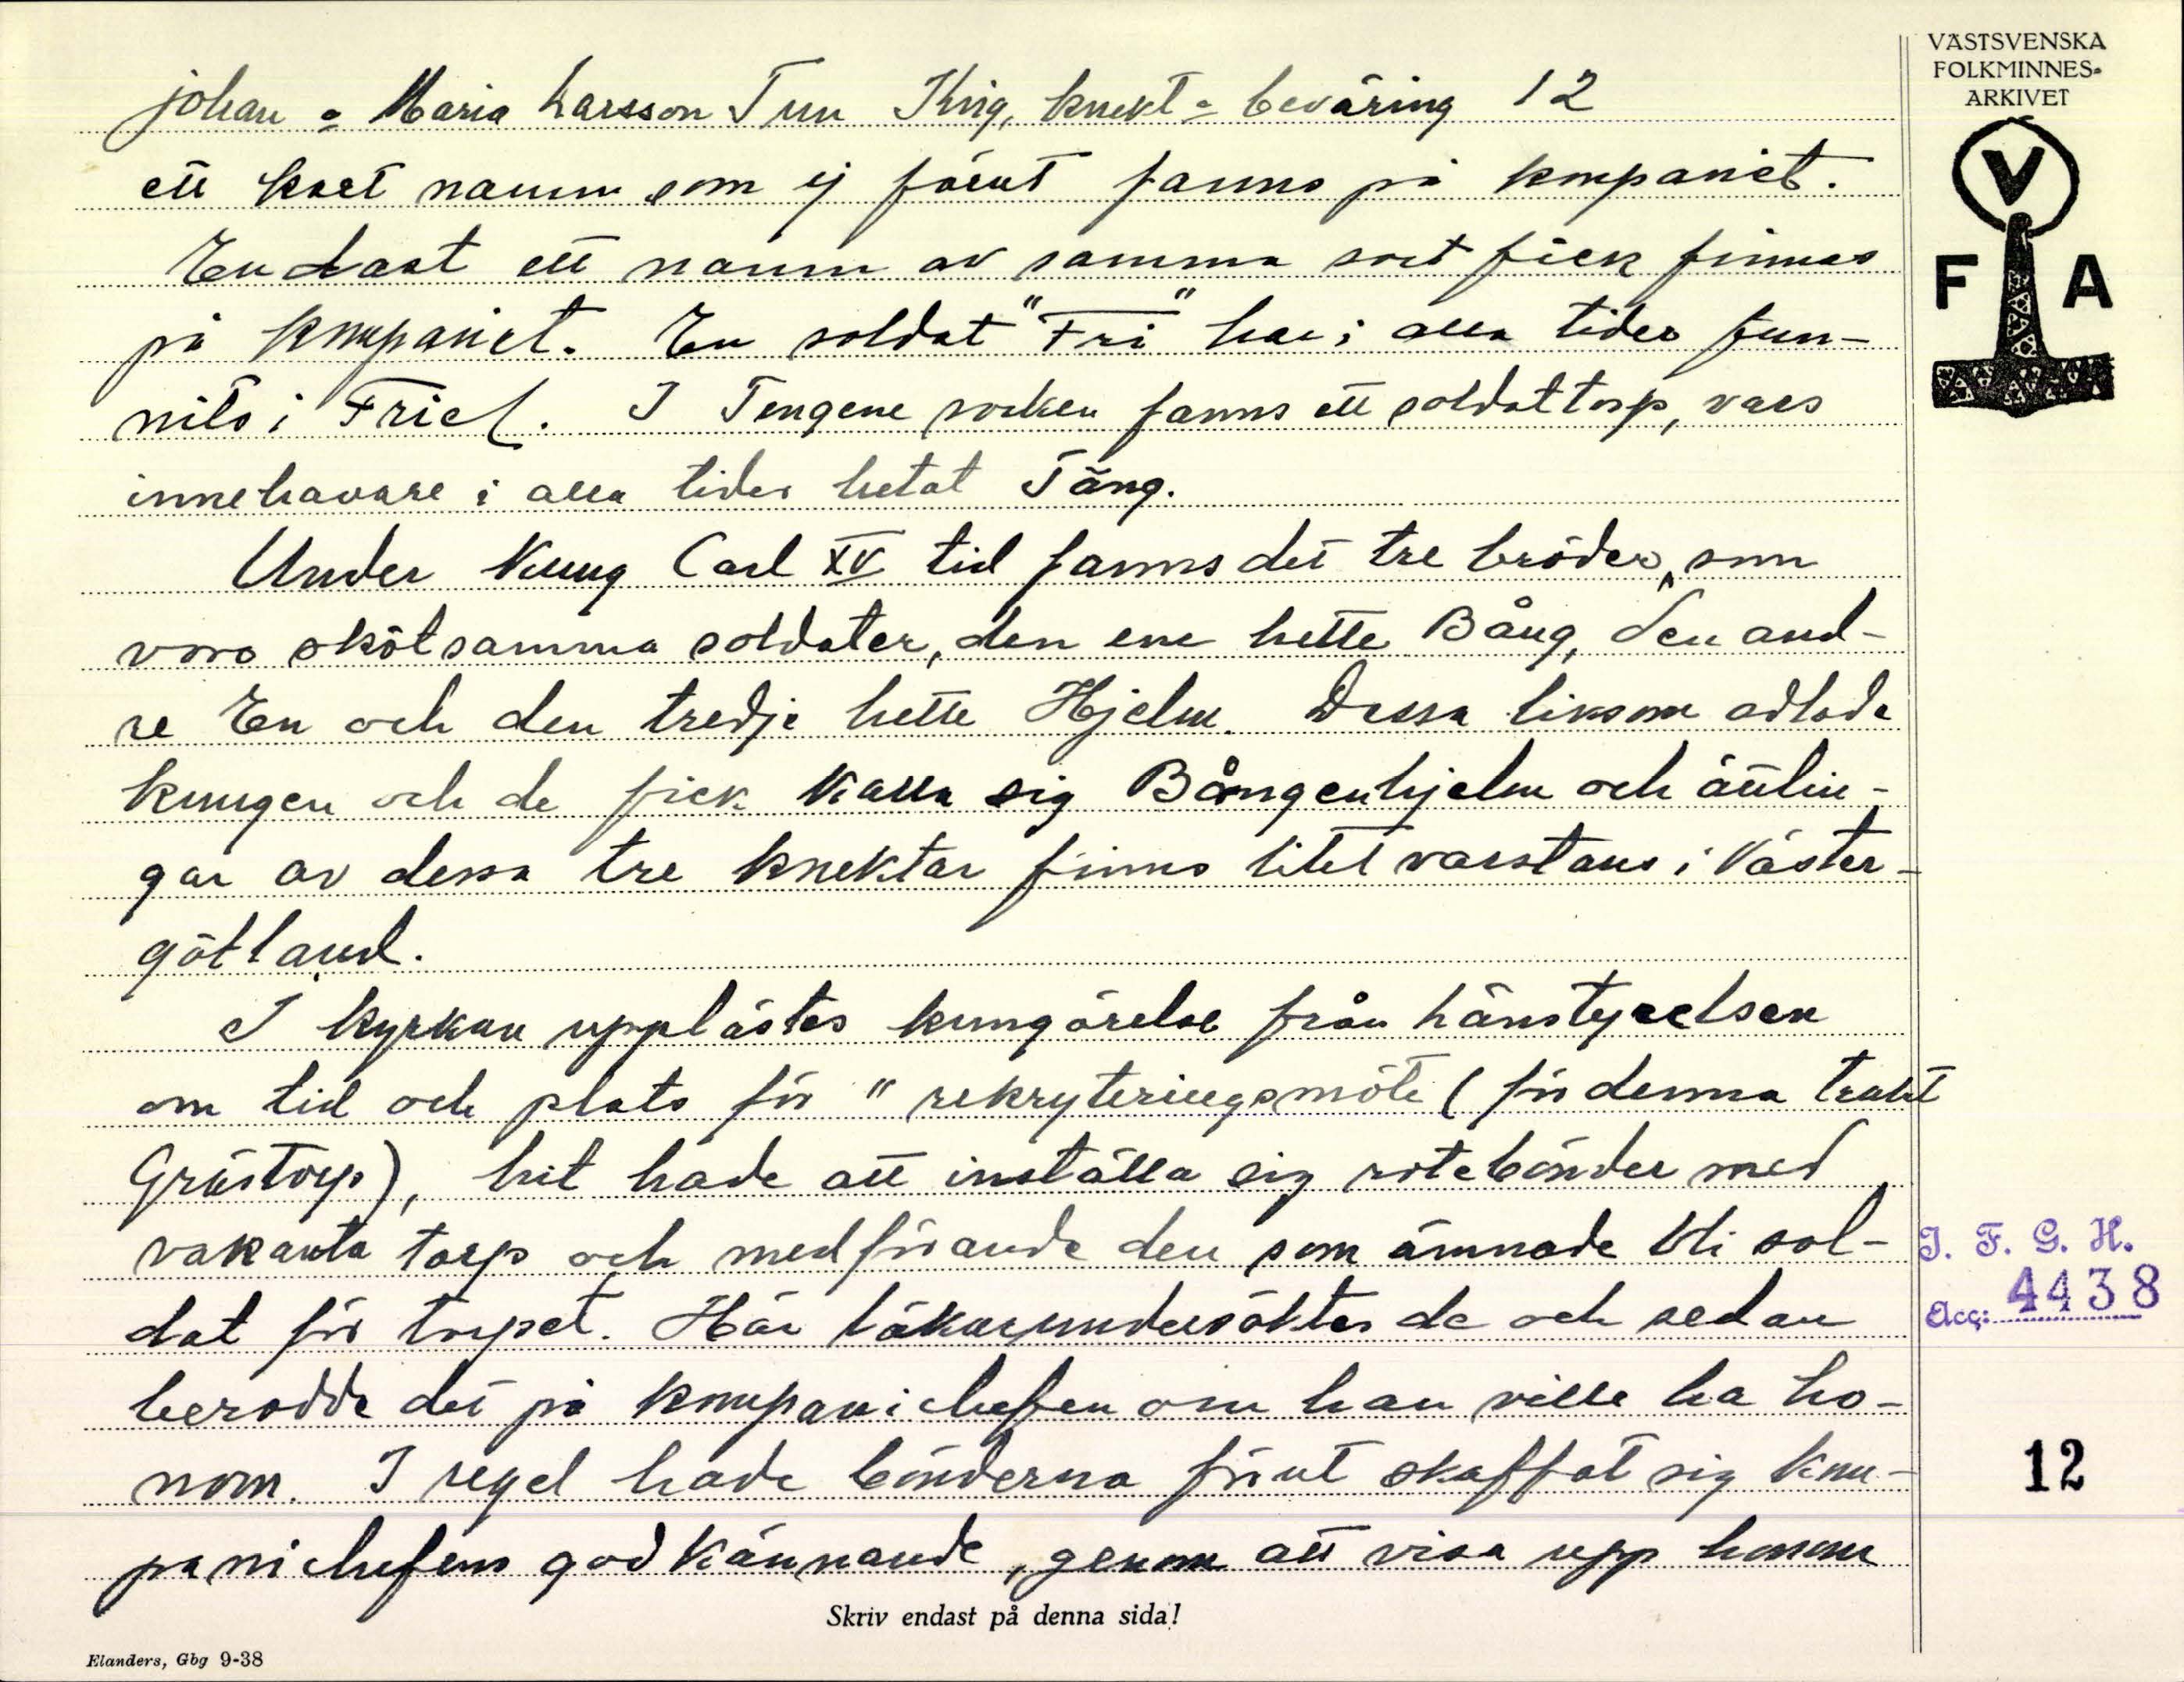 VÄSTSVENSKA
FOLKMINNES-
ARKIVET
V
F A
Johan o Maria Larsson Tun Krig, knekt o beväring 12
ett kort namn som ej förut fanns på kompaniet.
Endast ett namn av samma sort fick finnas
på kompaniet. En soldat "Fri" har i alla tider fun-
nits i Friel. I Tengene socken fanns ett soldattorp, vars
innehavare i alla tider hetat Täng.
Under Kung Carl XV tid fanns det tre bröder, som
voro skötsamma soldater, den ene hette Bång, den and-
re En och den tredje hette Hjelm. Dessa liksom adlade
kungen och de fick kalla sig Bångenhjelm och ättlin-
gar av dessa tre knektar finns litet varstans i Väster-
götland.
I kyrkan upplästes kungörelse från Länstyrelsen
om tid och plats för "rekryteringsmöte (för denna trakt
Grästorp), hit hade att inställa sig rotebönder med
vakanta torp och medförande den som ämnade bli sol-
dat för torpet. Här läkarundersöktes de och sedan
berodde det på kompanichefen om han ville ha ho-
nom. I regel hade bönderna förut skaffat sig kom-
panichefens godkännande, genom att visa upp honom
I. F. G. H.
Acc: 4438
12
Skriv endast på denna sida!
Elanders, Gbg 9-38